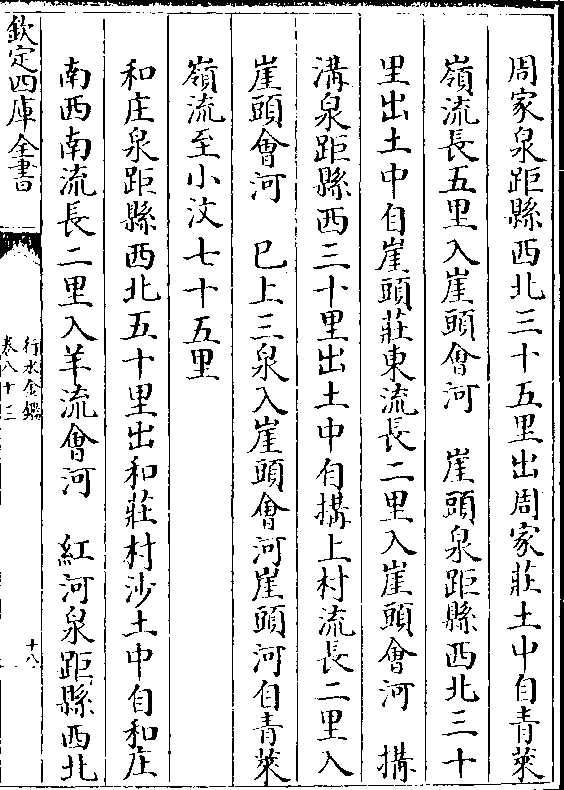 周家泉距縣西北三十五里出周家莊土中自青萊
嶺流長五里入崖頭會河　崖頭泉距縣西北三十
里出土中自崖頭莊東流長二里入崖頭會河　搆
溝泉距縣西三十里出土中自搆上村流長二里入
崖頭會河　已上三泉入崖頭會河崖頭河自青萊
嶺流至小汶七十五里
和庄泉距縣西北五十里出和莊村沙土中自和庄
南西南流長二里入羊流會河　紅河泉距縣西北
欽定四庫全書
行水金鑑
卷八十三
十八